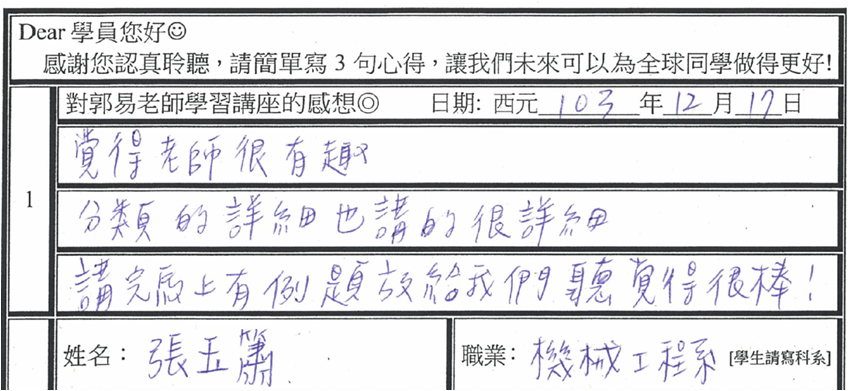 Dear 學員您好☺
感謝您認真聆聽，請簡單寫 3 句心得，讓我們未來可以為全球同學做得更好!
1
對郭易老師學習講座的感想◎ 日期: 西元 103 年 12 月 17 日
覺得老師很有趣
分類的詳細也講的很詳細
講完馬上有例題放給我們聽覺得很棒！
姓名： 張玉簫 職業： 機械工程系 [學生請寫科系]